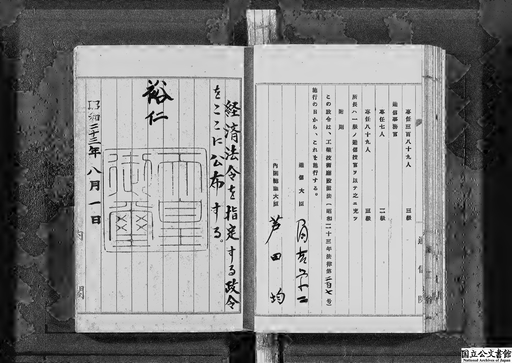 專任三百八十九人 三級
遞信事務官
專任七人 二級
專任八十九人 三級
所長ハ一級ノ遞信技官ヲ以テ之ニ充ツ
附則
この政令は、工業技術廳設置法(昭和二十三年法律第二百七号)
施行の日から、これを施行する。
遞信大臣
内閣総理大臣 芦田均
経済法令を指定する政令
をここに公布する。
裕仁
昭和二十三年八月一日
天皇御璽
内閣
国立公文書館
National Archives of Japan